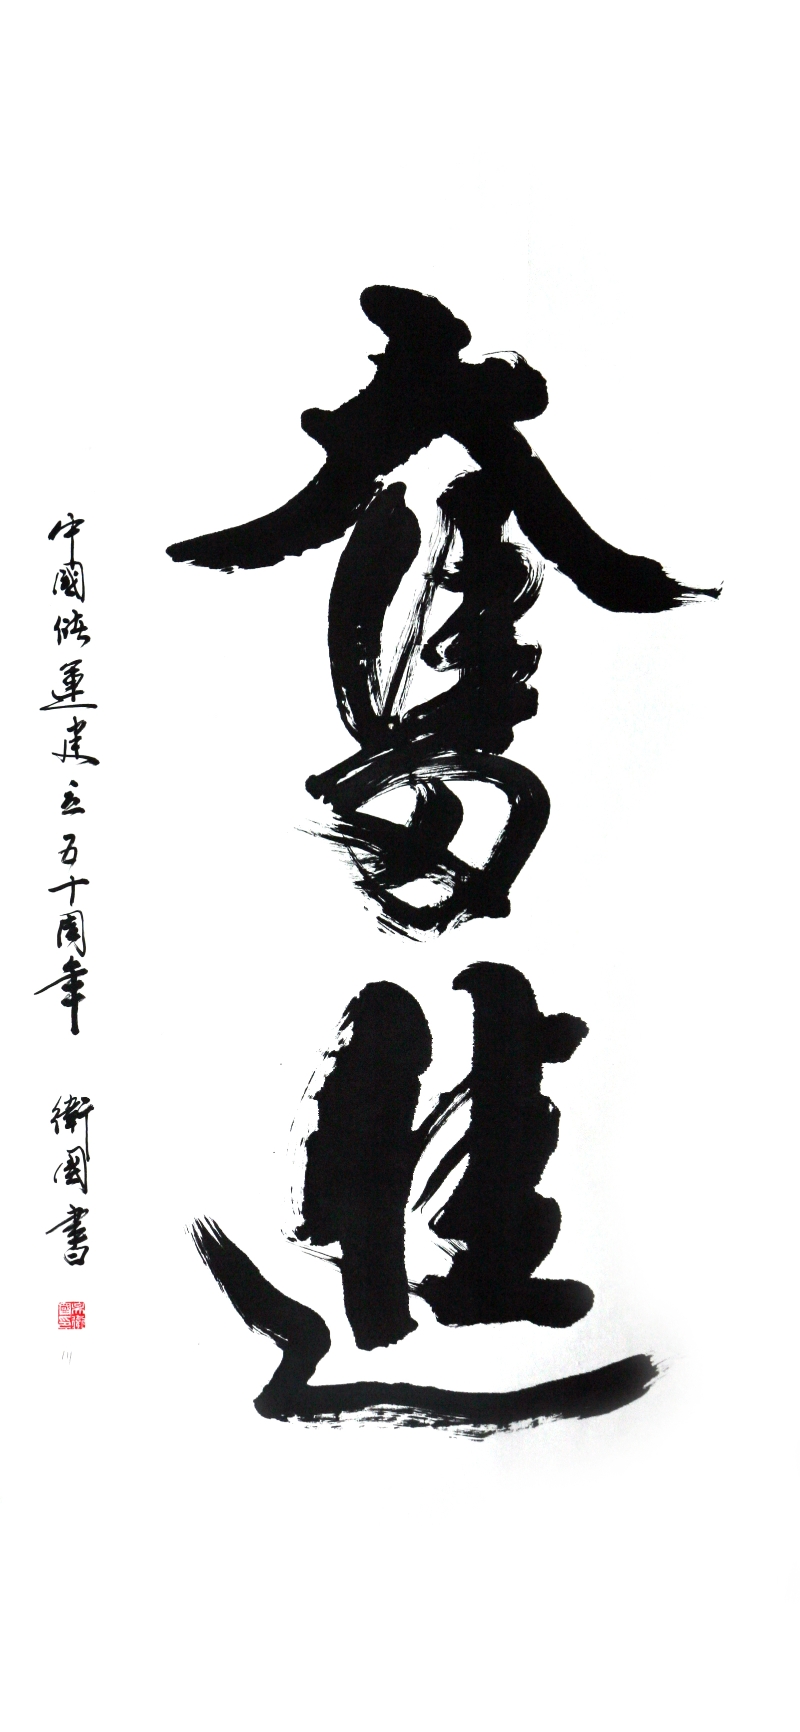 奮進
中國儲運建立五十周年 衛國書